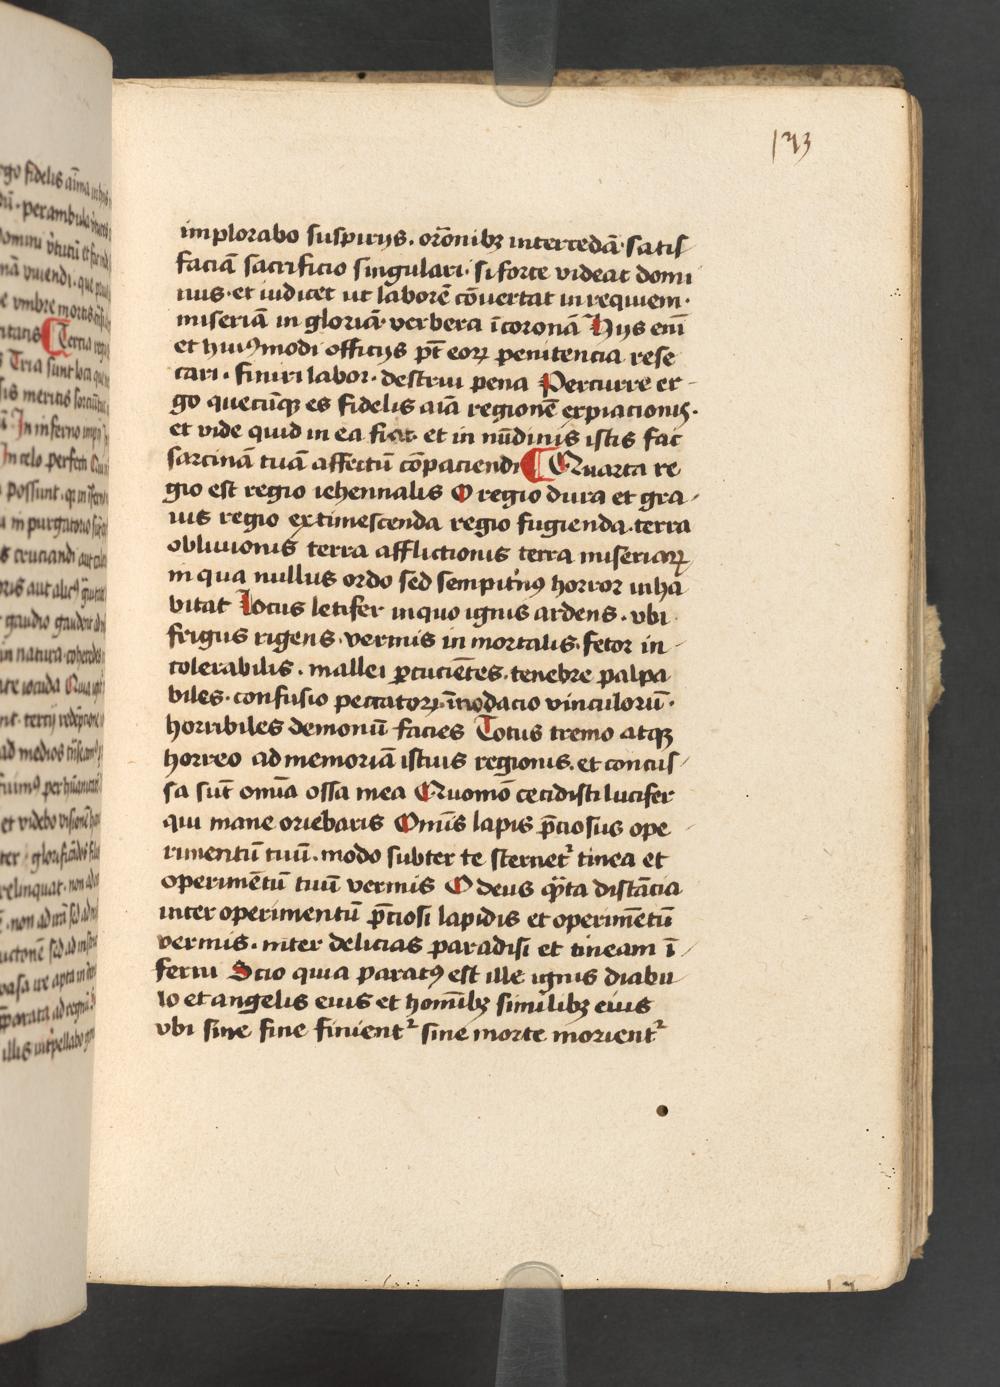 133
implorabo suspirijs. orōnibꝫ intercedā· satis-
faciā sacrificio singulari· si forte videat domi
nus· et iudicet ut laborē cōuertat in requiem·
miseriā in gloriā· verbera ī coronā Hijs enī
et huiꝰmodi officijs pt̄ eoꝝ penitencia rese
cari· finiri labor· destrui pena Percurre er-
go quecūqꝫ es fidelis aīā regionē expiacionis·
et vide quid in ea fiat· et in nūdinis istis fac
sarcinā tuā affectū cōpaciendi Quarta re
gio est regio iehennalis O regio dura et gra-
uis regio extimescenda regio fugienda· terra
obliuionis terra afflictionis terra miseriaꝝ
in qua nullus ordo sed sempit'nꝰ horror inha
bitat Locus letifer in quo ignis ardens· vbi
frigus rigens· vermis in mortalis· fetor in-
tolerabilis· mallei ꝑcucientes· tenebre palpa
biles· confusio peccatoꝝ· īnodacio vinculorū·
horribiles demonū facies Totus tremo atqꝫ
horreo ad memoriā istius regionis· et concus-
sa sūt omīa ossa mea Quomō cecidisti lucifer
qui mane oriebaris Omīs lapis p̄ciosus ope-
rimentū tuū· modo subter te sternet᷑ tinea et
operimētū tuū vermis O deus qꝫ̄ta distācia
inter operimentū p̄ciosi lapidis et operimētū
vermis· inter delicias paradisi et tineam ī-
ferni Scio quia paratꝰ est ille ignis diabu
lo et angelis eius et homībꝫ similibꝫ eius
vbi sine fine finient᷑ sine morte morient᷑